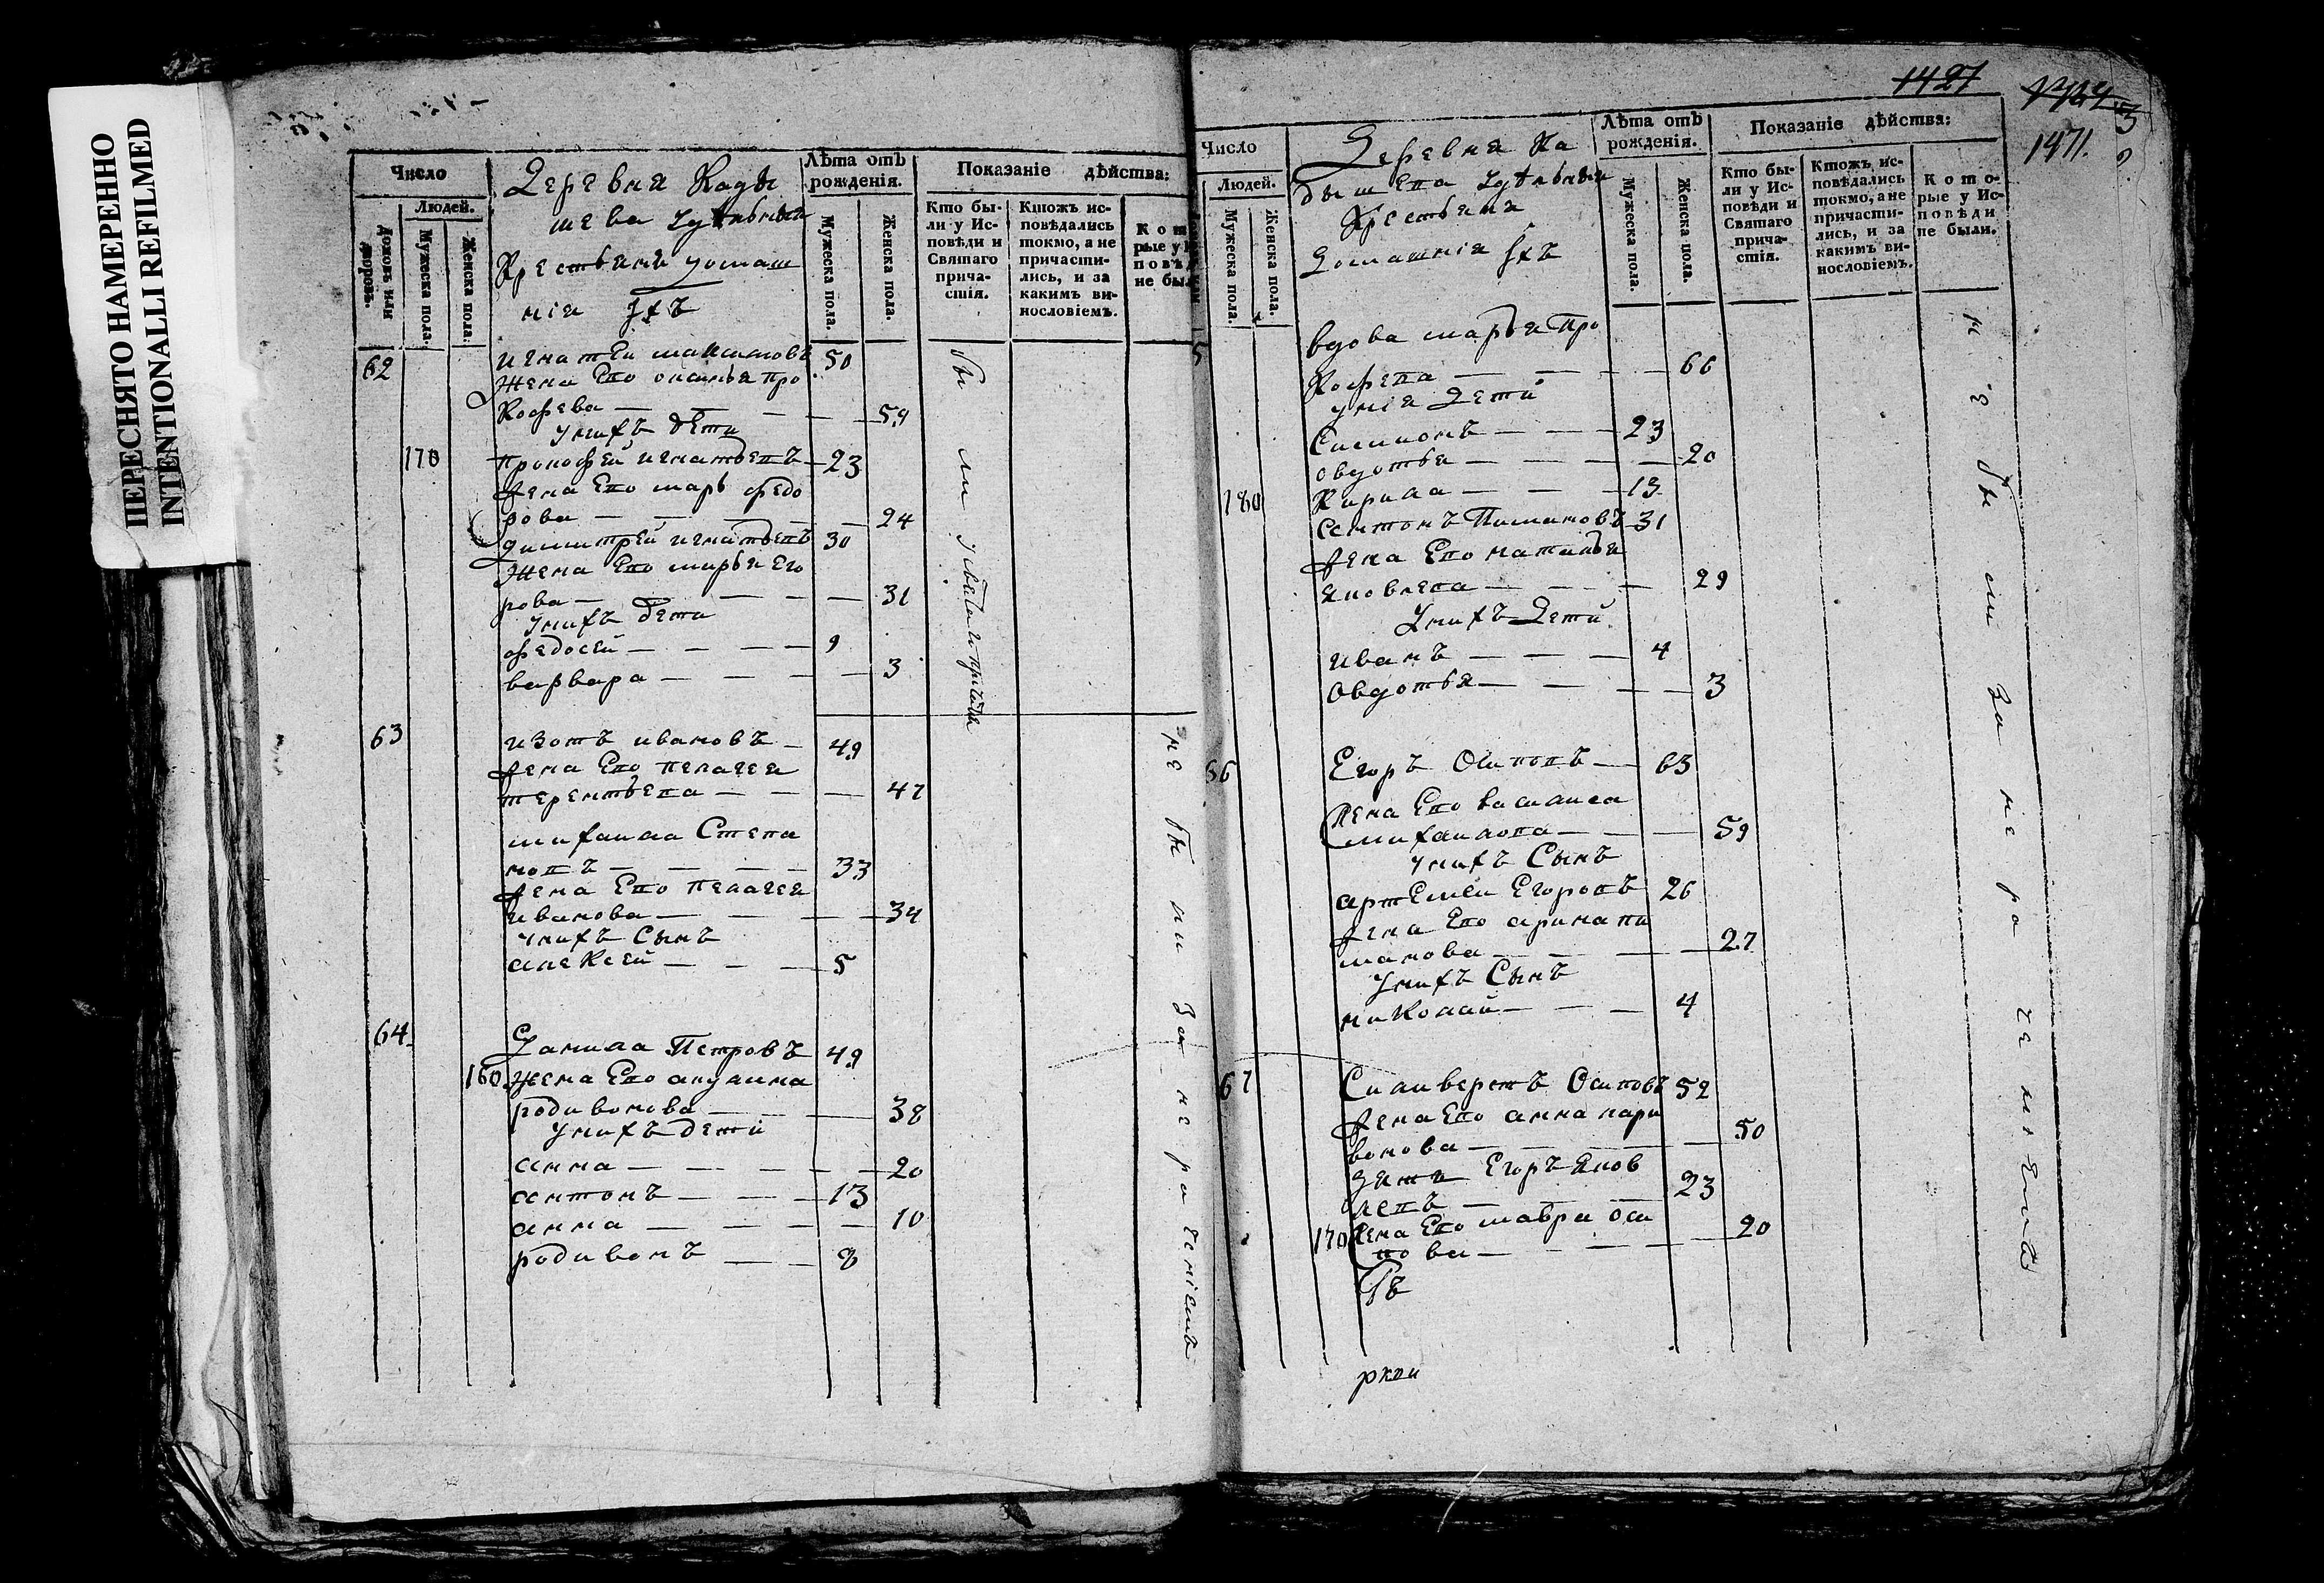 ПЕРЕСНЯТО НАМЕРЕННО
INTENTIONALLI REFILMED
Число
Людей.
Домовъ или дворовъ.
Мужеска пола.
Женска пола.
Деревня Кады
шева Удѣльныя
Крестьяня домаш
нія Ихъ
Лѣта отъ рожденія.
Мужеска пола.
Женска пола.
Показаніе дѣйства:
Кто бы-
ли у Ис-
повѣди и
Святаго
прича-
стія.
Ктожъ ис-
повѣдались
токмо, а не
причасти-
лись, и за
какимъ ви-
нословіемъ.
62 игнатей максимовъ 50
Жена Ево Про
кофева — — 59
унихъ дети
170 прокофей игнатьевъ 23
жена Ево марь федо
рова — — 24
димитрей игнатьевъ 30
Жена Ево марья Его
рова — — 31
унихъ дети
федосей — — 9
варвара — — 3
были у
63 изотъ ивановъ — 49
жена Ево пелагея
терентьева — — 47
михаила Степа
новъ — — 33
жена Ево пелагея
иванова — — 34
унихъ Сынъ
алексей — — 5
64 Данила Петровъ 49
160 Жена Ево акулина
родивонова — — 38
унихъ дети
анна — — 20
антонъ — — 13
анна — — 10
родивонъ — — 8
не были За не рачениемъ
1427
1471.
Число
Людей.
Мужеска пола.
Женска пола.
Деревня Ка
дышева Удѣльныя
Крестьяня
Домашнія Ихъ
Лѣта отъ
рожденія.
Мужеска пола.
Женска пола.
Показаніе дѣйства:
Кто бы-
ли у Ис-
повѣди и
Святаго
прича-
стія.
Ктожъ ис-
повѣдались
токмо, а не
причасти-
лись, и за
какимъ ви-
нословіемъ.
Кото-
рые у Ис-
повѣди
не были.
вдова марья Про
кофева — — 66
унія Дети
Симионъ — — 23
овдотья — — 20
180 Кирила — — 13
антонъ Пимановъ 31
жена Ево наталья
яковлева — — 29
Унихъ Дети
иванъ — — 4
Овдотья — — 3
66 Егоръ Осиповъ — 63
жена Ево василиса
михаилова — — 59
унихъ Сынъ
артемеи Егоровъ 26
жена Ево арина пи
манова — — 27
унихъ Сынъ
николаи — — 4
67 Силиверстъ Осиповъ 52
жена Ево анна лари
вонова — — 50
зять Егоръ яков
левъ — — 23
170 жена Ево мавра оси
пова — — 20
не были За не рачениемъ